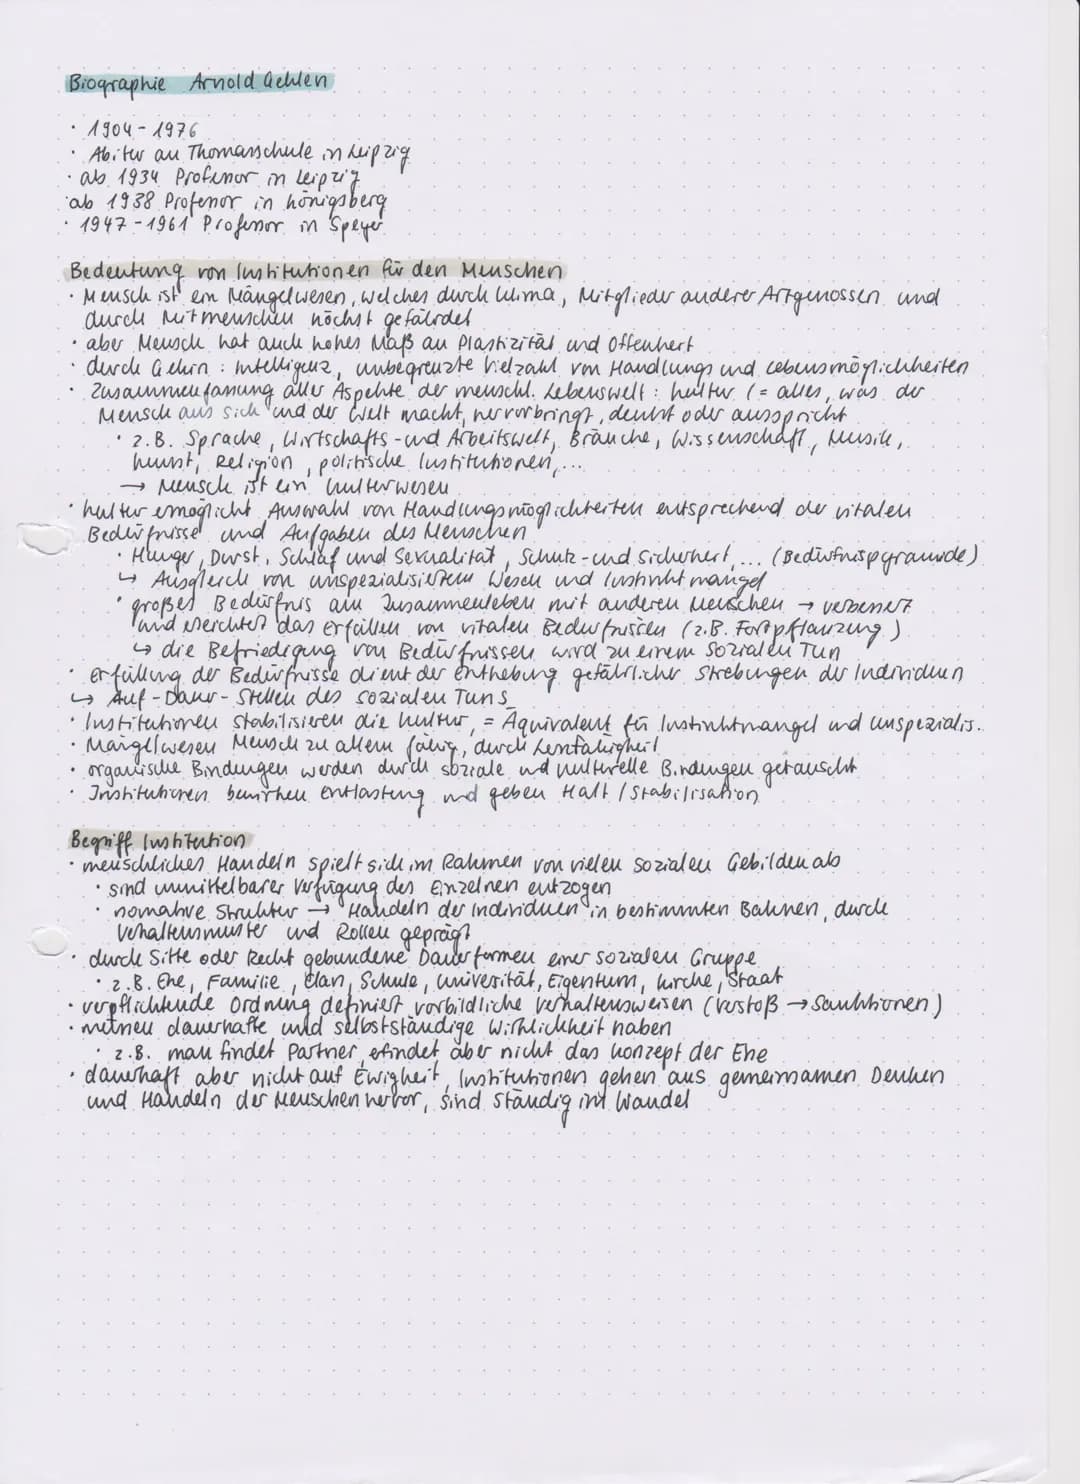 Biographie Arnold Gehlen
· 1904 - 1976
· Abitur an Thomasschule in Leipzig
· ab 1934 Professor in Leipzig
· ab 1938 Professor in Königsberg
· 1947 - 1961 Professor in Speyer
Bedeutung von Institutionen für den Menschen
· Mensch ist ein Mängelwesen, welches durch Klima, Mitglieder anderer Artgenossen und
durch Mitmenschen höchst gefährdet
· aber Mensch hat auch hohes Maß an Plastizität und Offenheit
· durch Gehirn : Intelligenz, unbegrenzte Vielzahl von Handlungs und Lebensmöglichkeiten
· Zusammenfassung aller Aspekte der menschl. Lebenswelt : Kultur (= alles, was der
Mensch aus sich und der Welt macht, hervorbringt, denkt oder ausspricht
· z.B. Sprache, Wirtschafts - und Arbeitswelt, Bräuche, Wissenschaft, Musik,
Kunst, Religion, politische Institutionen, ...
→ Mensch ist ein Kulturwesen
· Kultur ermöglicht Auswahl von Handlungsmöglichkeiten entsprechend der vitalen
Bedürfnisse und Aufgaben des Menschen
· Hunger, Durst, Schlaf und Sexualität, Schutz - und Sicherheit, ... (Bedürfnispyramide)
↳ Ausgleich von unspezialisiertem Wesen und Instinktmangel
· großes Bedürfnis am Zusammenleben mit anderen Menschen → verbessert
und erleichtert das Erfüllen von vitalen Bedürfnissen (z.B. Fortpflanzung)
↳ die Befriedigung von Bedürfnissen wird zu einem sozialen Tun
· Erfüllung der Bedürfnisse dient der Enthebung gefährlicher Strebungen der Individuen
↳ Auf - Dauer - Stellen des sozialen Tuns
· Institutionen stabilisieren die Kultur, = Äquivalent für Instinktmangel und unspezialis.
· Mängelwesen Mensch zu allem fähig, durch Lernfähigkeit
· organische Bindungen werden durch soziale und kulturelle Bindungen getauscht
· Institutionen bewirken Entlastung und geben Halt / Stabilisation
Begriff Institution
· menschliches Handeln spielt sich im Rahmen von vielen sozialen Gebilden ab
· sind unmittelbarer Verfügung des Einzelnen entzogen
· normative Struktur → Handeln der Individuen in bestimmten Bahnen, durch
Verhaltensmuster und Rollen geprägt
· durch Sitte oder Recht gebundene Dauerformen einer sozialen Gruppe
· z.B. Ehe, Familie, Clan, Schule, Universität, Eigentum, Kirche, Staat
· verpflichtende Ordnung definiert vorbildliche Verhaltensweisen (Verstoß → Sanktionen)
· dauerhafte und selbstständige Wirklichkeit haben
· z.B. man findet Partner, erfindet aber nicht das Konzept der Ehe
· dauerhaft aber nicht auf Ewigkeit, Institutionen gehen aus gemeinsamen Denken
und Handeln der Menschen hervor, sind ständig im Wandel